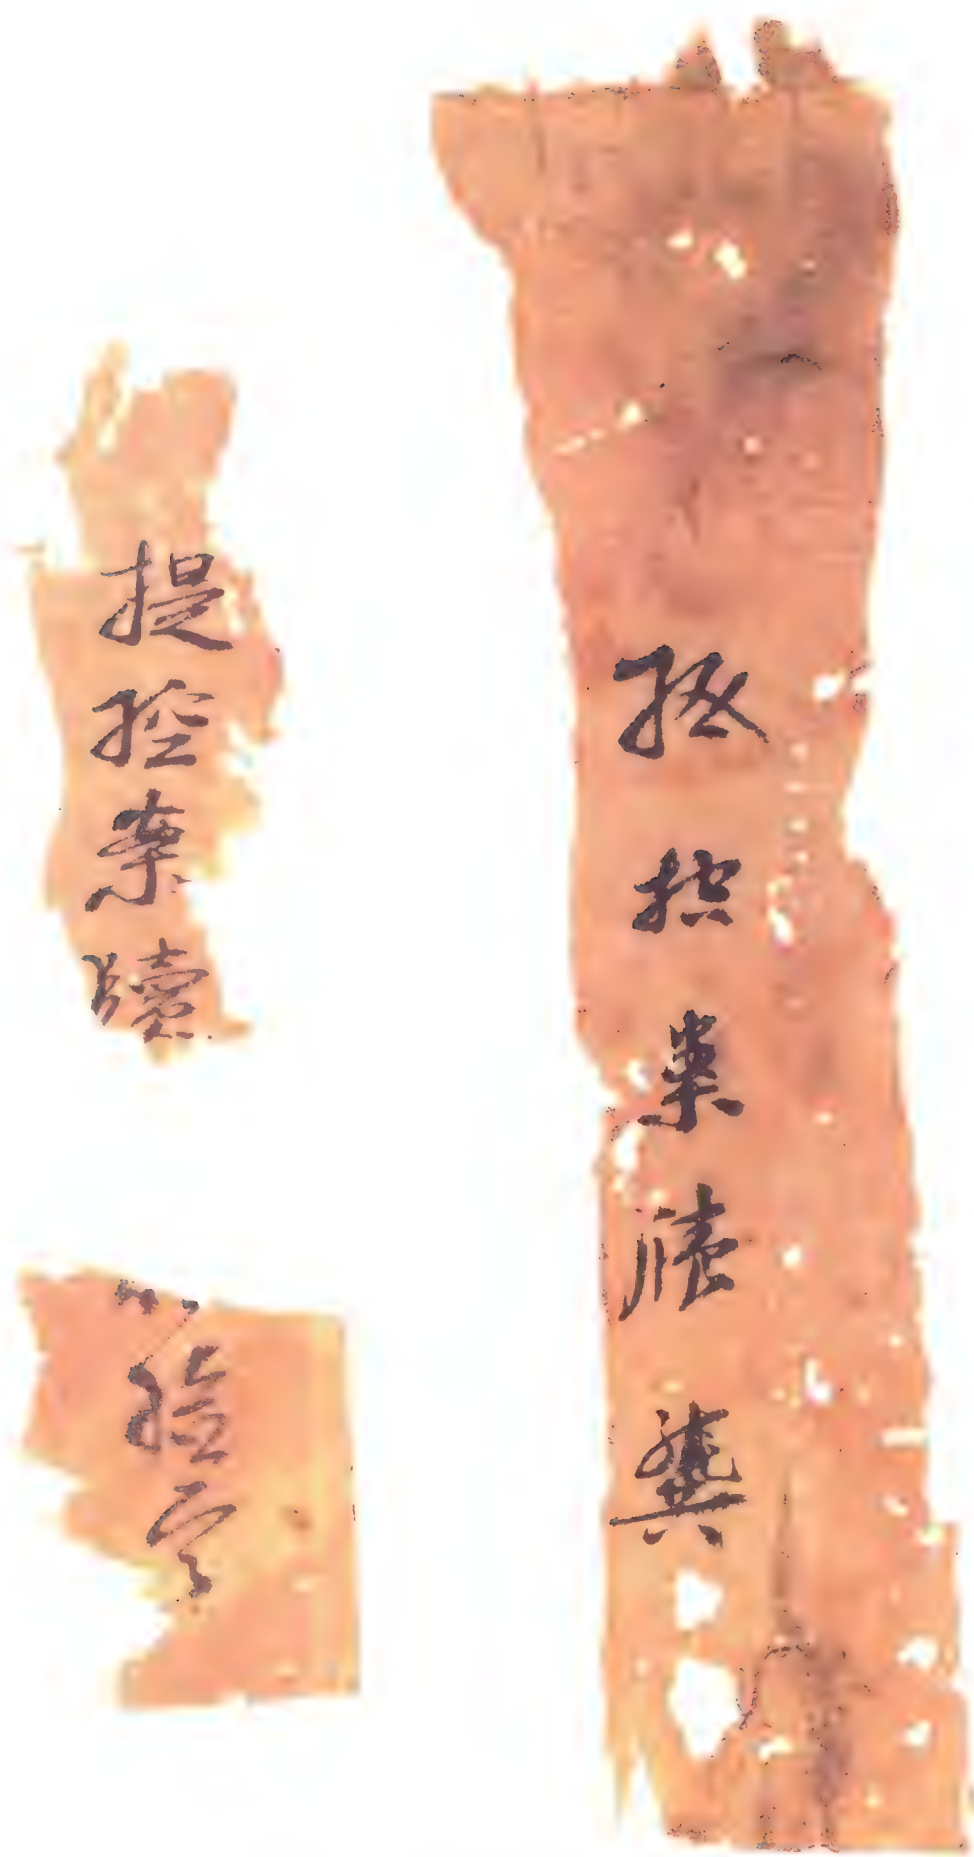 提控案牘龔
提控案牘